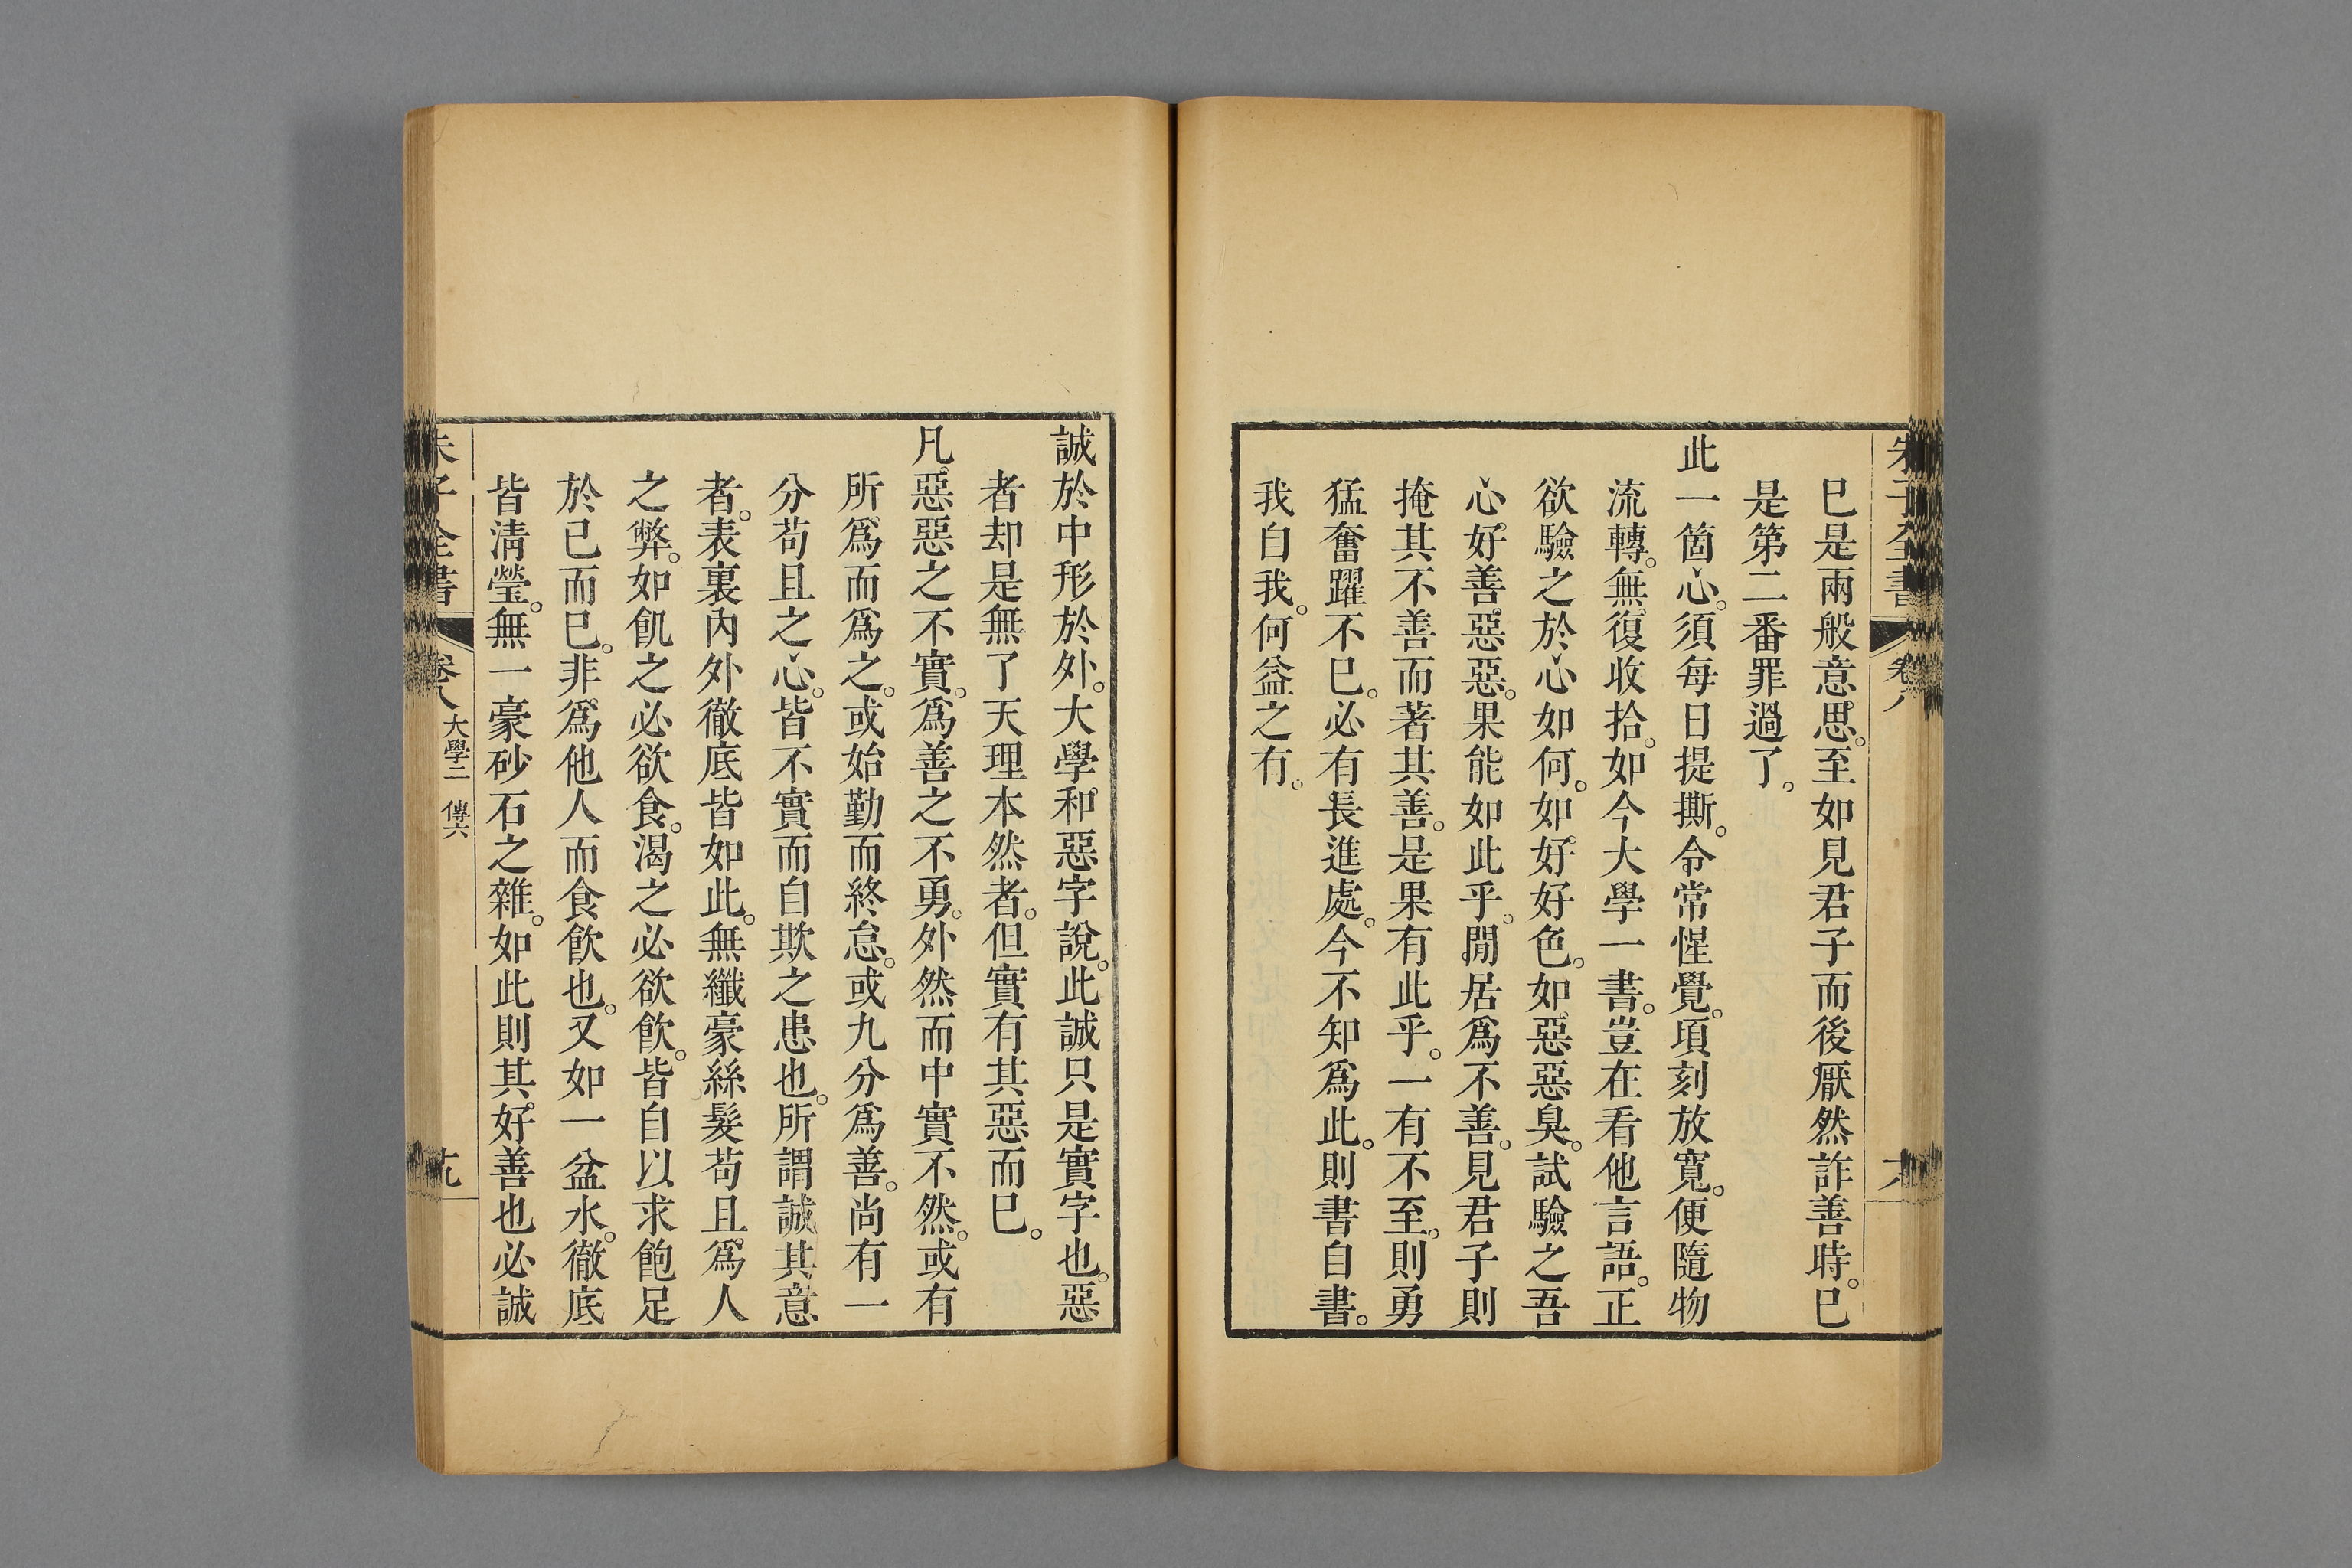 朱子全書 卷八
已是兩般意思。至如見君子而後厭然詐善時。已
是第二番罪過了。
此一箇心。須每日提撕。令常惺覺。頃刻放寬。便隨物
流轉。無復收拾。如今大學一書。豈在看他言語。正
欲驗之於心如何。如好好色。如惡惡臭。試驗之吾
心。好善惡惡。果能如此乎。閒居爲不善。見君子則
掩其不善而著其善。是果有此乎。一有不至。則勇
猛奮躍不已。必有長進處。今不知爲此。則書自書。
我自我。何益之有。
誠於中形於外。大學和惡字說。此誠只是實字也。惡
者却是無了天理本然者。但實有其惡而已。
凡惡惡之不實。爲善之不勇。外然而中實不然。或有
所爲而爲之。或始勤而終怠。或九分爲善。尚有一
分苟且之心。皆不實而自欺之患也。所謂誠其意
者。表裏內外徹底皆如此。無纖豪絲髮苟且爲人
之弊。如飢之必欲食。渴之必欲飮。皆自以求飽足
於已而已。非爲他人而食飮也。又如一盆水。徹底
皆淸瑩。無一豪砂石之雜。如此則其好善也必誠
朱子全書 卷八 大學二 傳六